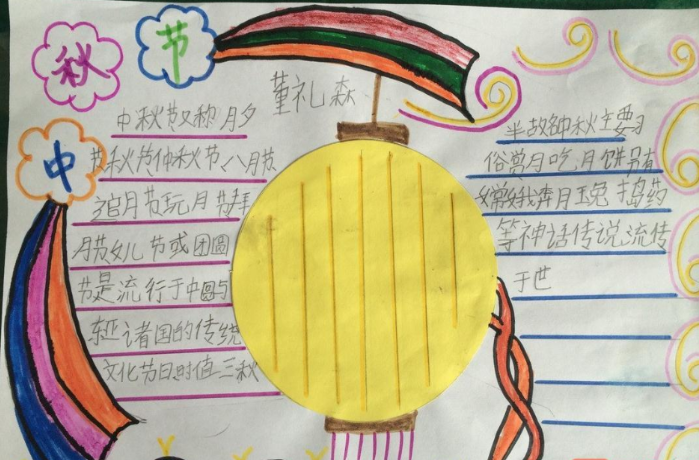 中秋节
董礼森
中秋节又称月夕
节秋节仲秋节八月节
追月节玩月节拜
月节女儿节或团圆
节是流行于中国与
东亚诸国的传统
文化节日时值三秋
半故钟秋主要习
俗赏月吃月饼另有
嫦娥奔月玉兔捣药
等神话传说流传
于世